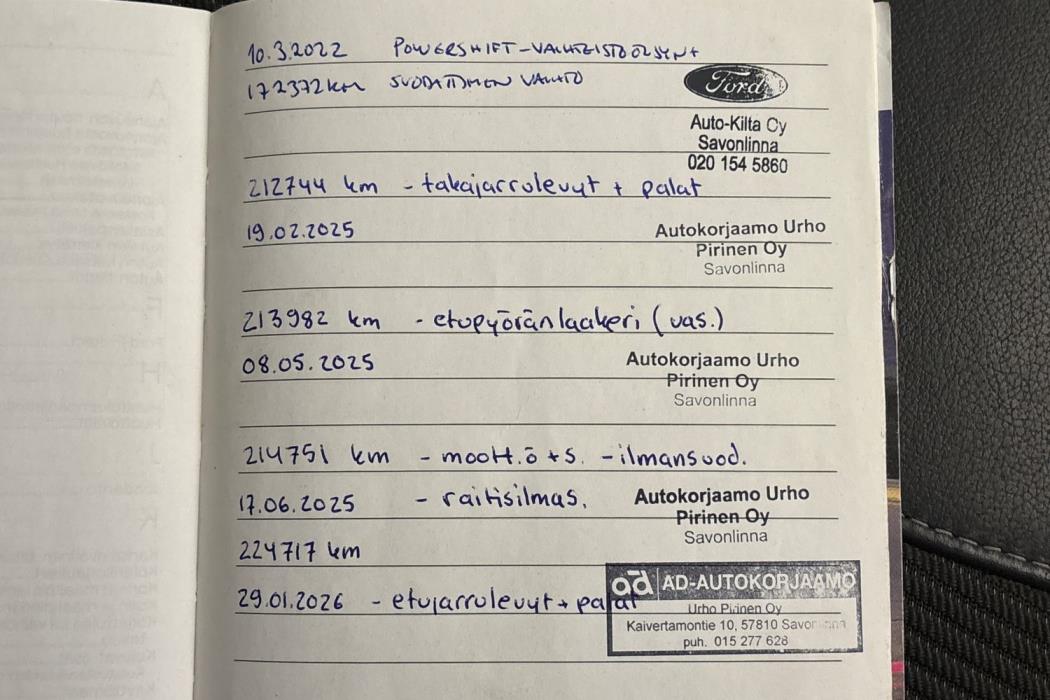 10.3.2022 POWERSHIFT-VAIHTEISTOÖLJYN+
172372 km SUODATTIMEN VAIHTO
Ford
Auto-Kilta Oy
Savonlinna
020 154 5860
212744 km - takajarrulevyt + palat
19.02.2025
Autokorjaamo Urho
Pirinen Oy
Savonlinna
213982 km - etupyöränlaakeri (vas.)
08.05.2025
Autokorjaamo Urho
Pirinen Oy
Savonlinna
214751 km - moott.ö + s. - ilmansuod.
17.06.2025 - raitisilmas.
Autokorjaamo Urho
Pirinen Oy
Savonlinna
224717 km
29.01.2026 - etujarrulevyt + palat
ad AD-AUTOKORJAAMO
Urho Pirinen Oy
Kaivertamontie 10, 57810 Savonlinna
puh. 015 277 628